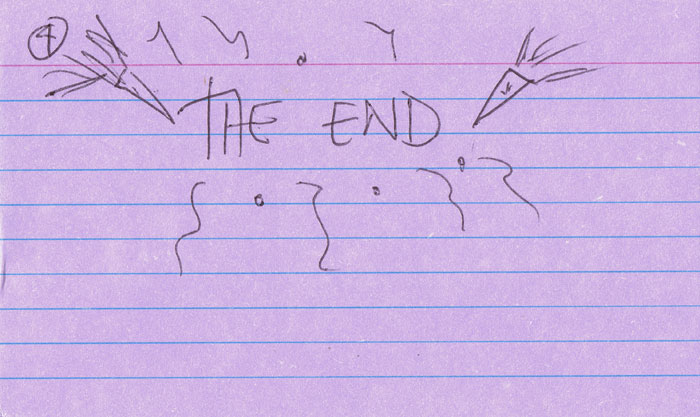 4
THE END